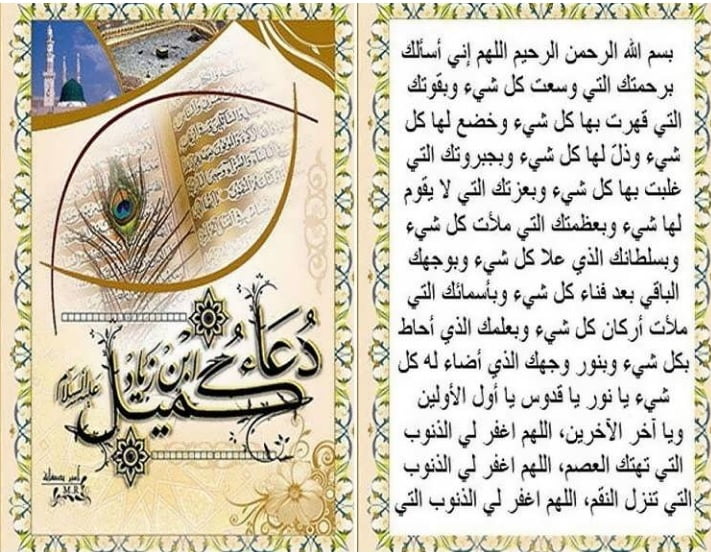 دُعَاءُ
كُمَيْل ابْن زِيَاد
عليه السلام
M.R
بسم الله الرحمن الرحيم اللهم إني أسألك
برحمتك التي وسعت كل شيء وبقوتك
التي قهرت بها كل شيء وخضع لها كل
شيء وذلّ لها كل شيء وبجبروتك التي
غلبت بها كل شيء وبعزتك التي لا يقوم
لها شيء وبعظمتك التي ملأت كل شيء
وبسلطانك الذي علا كل شيء وبوجهك
الباقي بعد فناء كل شيء وبأسمائك التي
ملأت أركان كل شيء وبعلمك الذي أحاط
بكل شيء وبنور وجهك الذي أضاء له كل
شيء يا نور يا قدوس يا أول الأولين
ويا آخر الآخرين، اللهم اغفر لي الذنوب
التي تهتك العصم، اللهم اغفر لي الذنوب
التي تنزل النقم، اللهم اغفر لي الذنوب التي